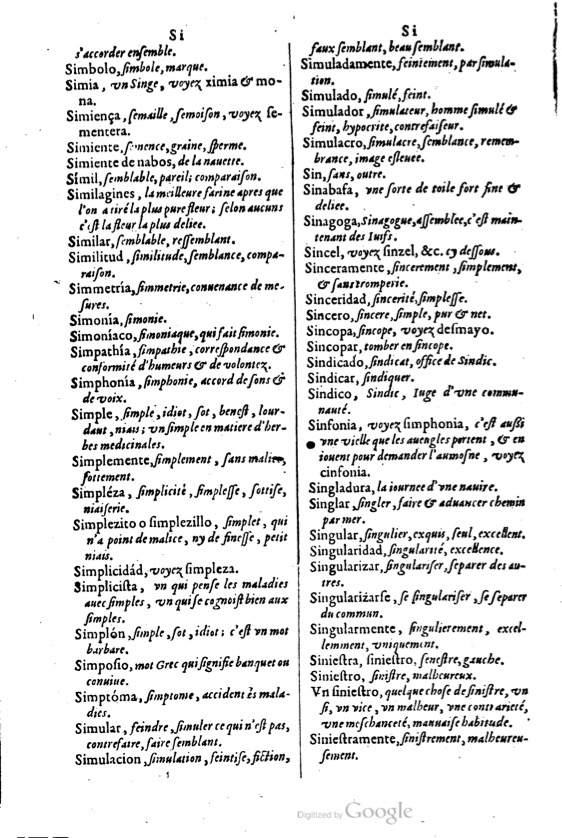 Si
s'accorder enſemble.
Simbolo, ſimbole, marque.
Simia, vn Singe, voyez ximia & mo-
na.
Simiença, ſemaille, ſemoiſon, voyez ſe-
mentera.
Simiente, ſemence, graine, ſperme.
Simiente de nabos, de la nauette.
Símil, ſemblable, pareil; comparaiſon.
Similagines, la meilleure farine apres que
l'on a tiré la plus pure fleur; ſelon aucuns
c'eſt la fleur la plus deliee.
Similar, ſemblable, reſſemblant.
Similitud, ſimilitude, ſemblance, compa-
raiſon.
Simmetría, ſimmetrie, conuenance de me-
ſures.
Simonía, ſimonie.
Simoníaco, ſimoniaque, qui fait ſimonie.
Simpathía, ſimpathie, correſpondance &
conformité d'humeurs & de volontez.
Simphonía, ſimphonie, accord de ſons &
de voix.
Simple, ſimple, idiot, ſot, beneſt, lour-
daut, niais; vn ſimple en matiere d'her-
bes medicinales.
Simplemente, ſimplement, ſans malice,
ſottement.
Simpléza, ſimplicité, ſimpleſſe, ſottiſe,
niaiſerie.
Simplezito o ſimplezillo, ſimplet, qui
n'a point de malice, ny de fineſſe, petit
niais.
Simplicidád, voyez ſimpleza.
Simpliciſta, vn qui penſe les maladies
auec ſimples, vn qui ſe cognoiſt bien aux
ſimples.
Simplón, ſimple, ſot, idiot; c'eſt vn mot
barbare.
Simpoſio, mot Grec qui ſignifie banquet ou
conuiue.
Simptóma, ſimptome, accident és mala-
dies.
Simular, feindre, ſimuler ce qui n'eſt pas,
contrefaire, faire ſemblant.
Simulacion, ſimulation, feintiſe, fiction,
Si
faux ſemblant, beau ſemblant.
Simuladamente, feintement, par ſimula-
tion.
Simulado, ſimulé, feint.
Simulador, ſimulateur, homme ſimulé &
feint, hypocrite, contrefaiſeur.
Simulacro, ſimulacre, ſemblance, remem-
brance, image eſleuee.
Sin, ſans, outre.
Sinabafa, vne ſorte de toile fort fine &
deliee.
Sinagoga, Sinagogue, aſſemblee, c'eſt main-
tenant des Iuifs.
Sincel, voyez ſinzel, &c. cy deſſous.
Sinceramente, ſincerement, ſimplement,
& ſans tromperie.
Sinceridad, ſincerité, ſimpleſſe.
Sincero, ſincere, ſimple, pur & net.
Sincopa, ſincope, voyez deſmayo.
Sincopar, tomber en ſincope.
Sindicado, ſindicat, office de Sindic.
Sindicar, ſindiquer.
Sindico, Sindic, Iuge d'vne commu-
nauté.
Sinfonia, voyez ſimphonia, c'eſt auſſi
vne vielle que les aueugles portent, & en
iouent pour demander l'aumoſne, voyez
cinfonia.
Singladura, la iournee d'vne nauire.
Singlar, ſingler, faire & aduancer chemin
par mer.
Singular, ſingulier, exquis, ſeul, excellent.
Singularidad, ſingularité, excellence.
Singularizar, ſingulariſer, ſeparer des au-
tres.
Singularizarſe, ſe ſingulariſer, ſe ſeparer
du commun.
Singularmente, ſingulierement, excel-
lemment, vniquement.
Sinieſtra, ſinieſtro, ſeneſtre, gauche.
Sinieſtro, ſiniſtre, malheureux.
Vn ſinieſtro, quelque choſe de ſiniſtre, vn
ſi, vn vice, vn malheur, vne contrarieté,
vne meſchanceté, mauuaiſe habitude.
Sinieſtramente, ſiniſtrement, malheureu-
ſement.
Digitized by Google